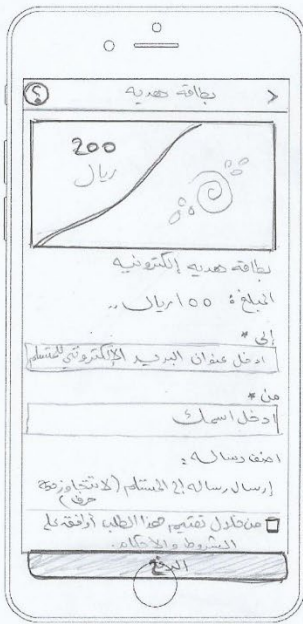 ؟
بطاقة هدية
200
ريال
بطاقة هدية إلكترونية
المبلغ: 100 ريال..
إلى *
ادخل عنوان البريد الإلكتروني للمستلم
من *
ادخل اسمك
اضف رسالة:
إرسال رسالة إلى المستلم (لا تتجاوز
حرف)
من خلال تقديم هذا الطلب أوافق على
الشروط والأحكام.
الدفع